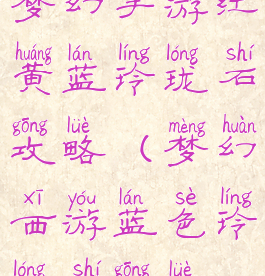 梦幻手游红
huáng lán líng lóng shí
黄蓝玲珑石
gōng lüè mèng huàn
攻略(梦幻
xī yóu lán sè líng
西游蓝色玲
lóng shí gōng lüè